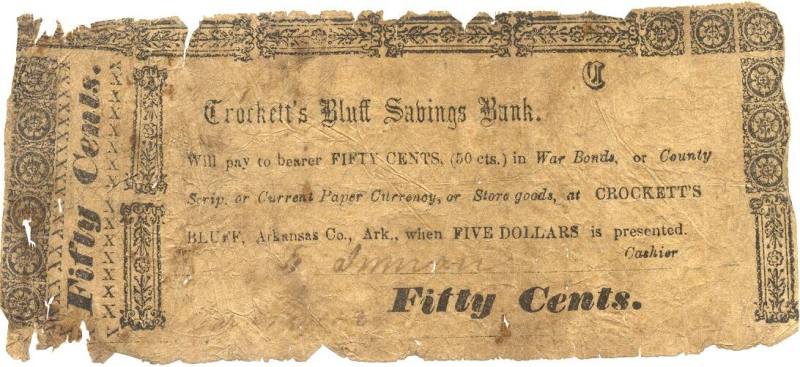 Fifty Cents.
XXXXXXXXXXXXXX
C
Crockett's Bluff Savings Bank.
Will pay to bearer FIFTY CENTS, (50 cts.) in War Bonds, or County
Scrip, or Current Paper Currency, or Store goods, at CROCKETT'S
BLUFF, Arkansas Co., Ark., when FIVE DOLLARS is presented.
Cashier
Inman
Fifty Cents.